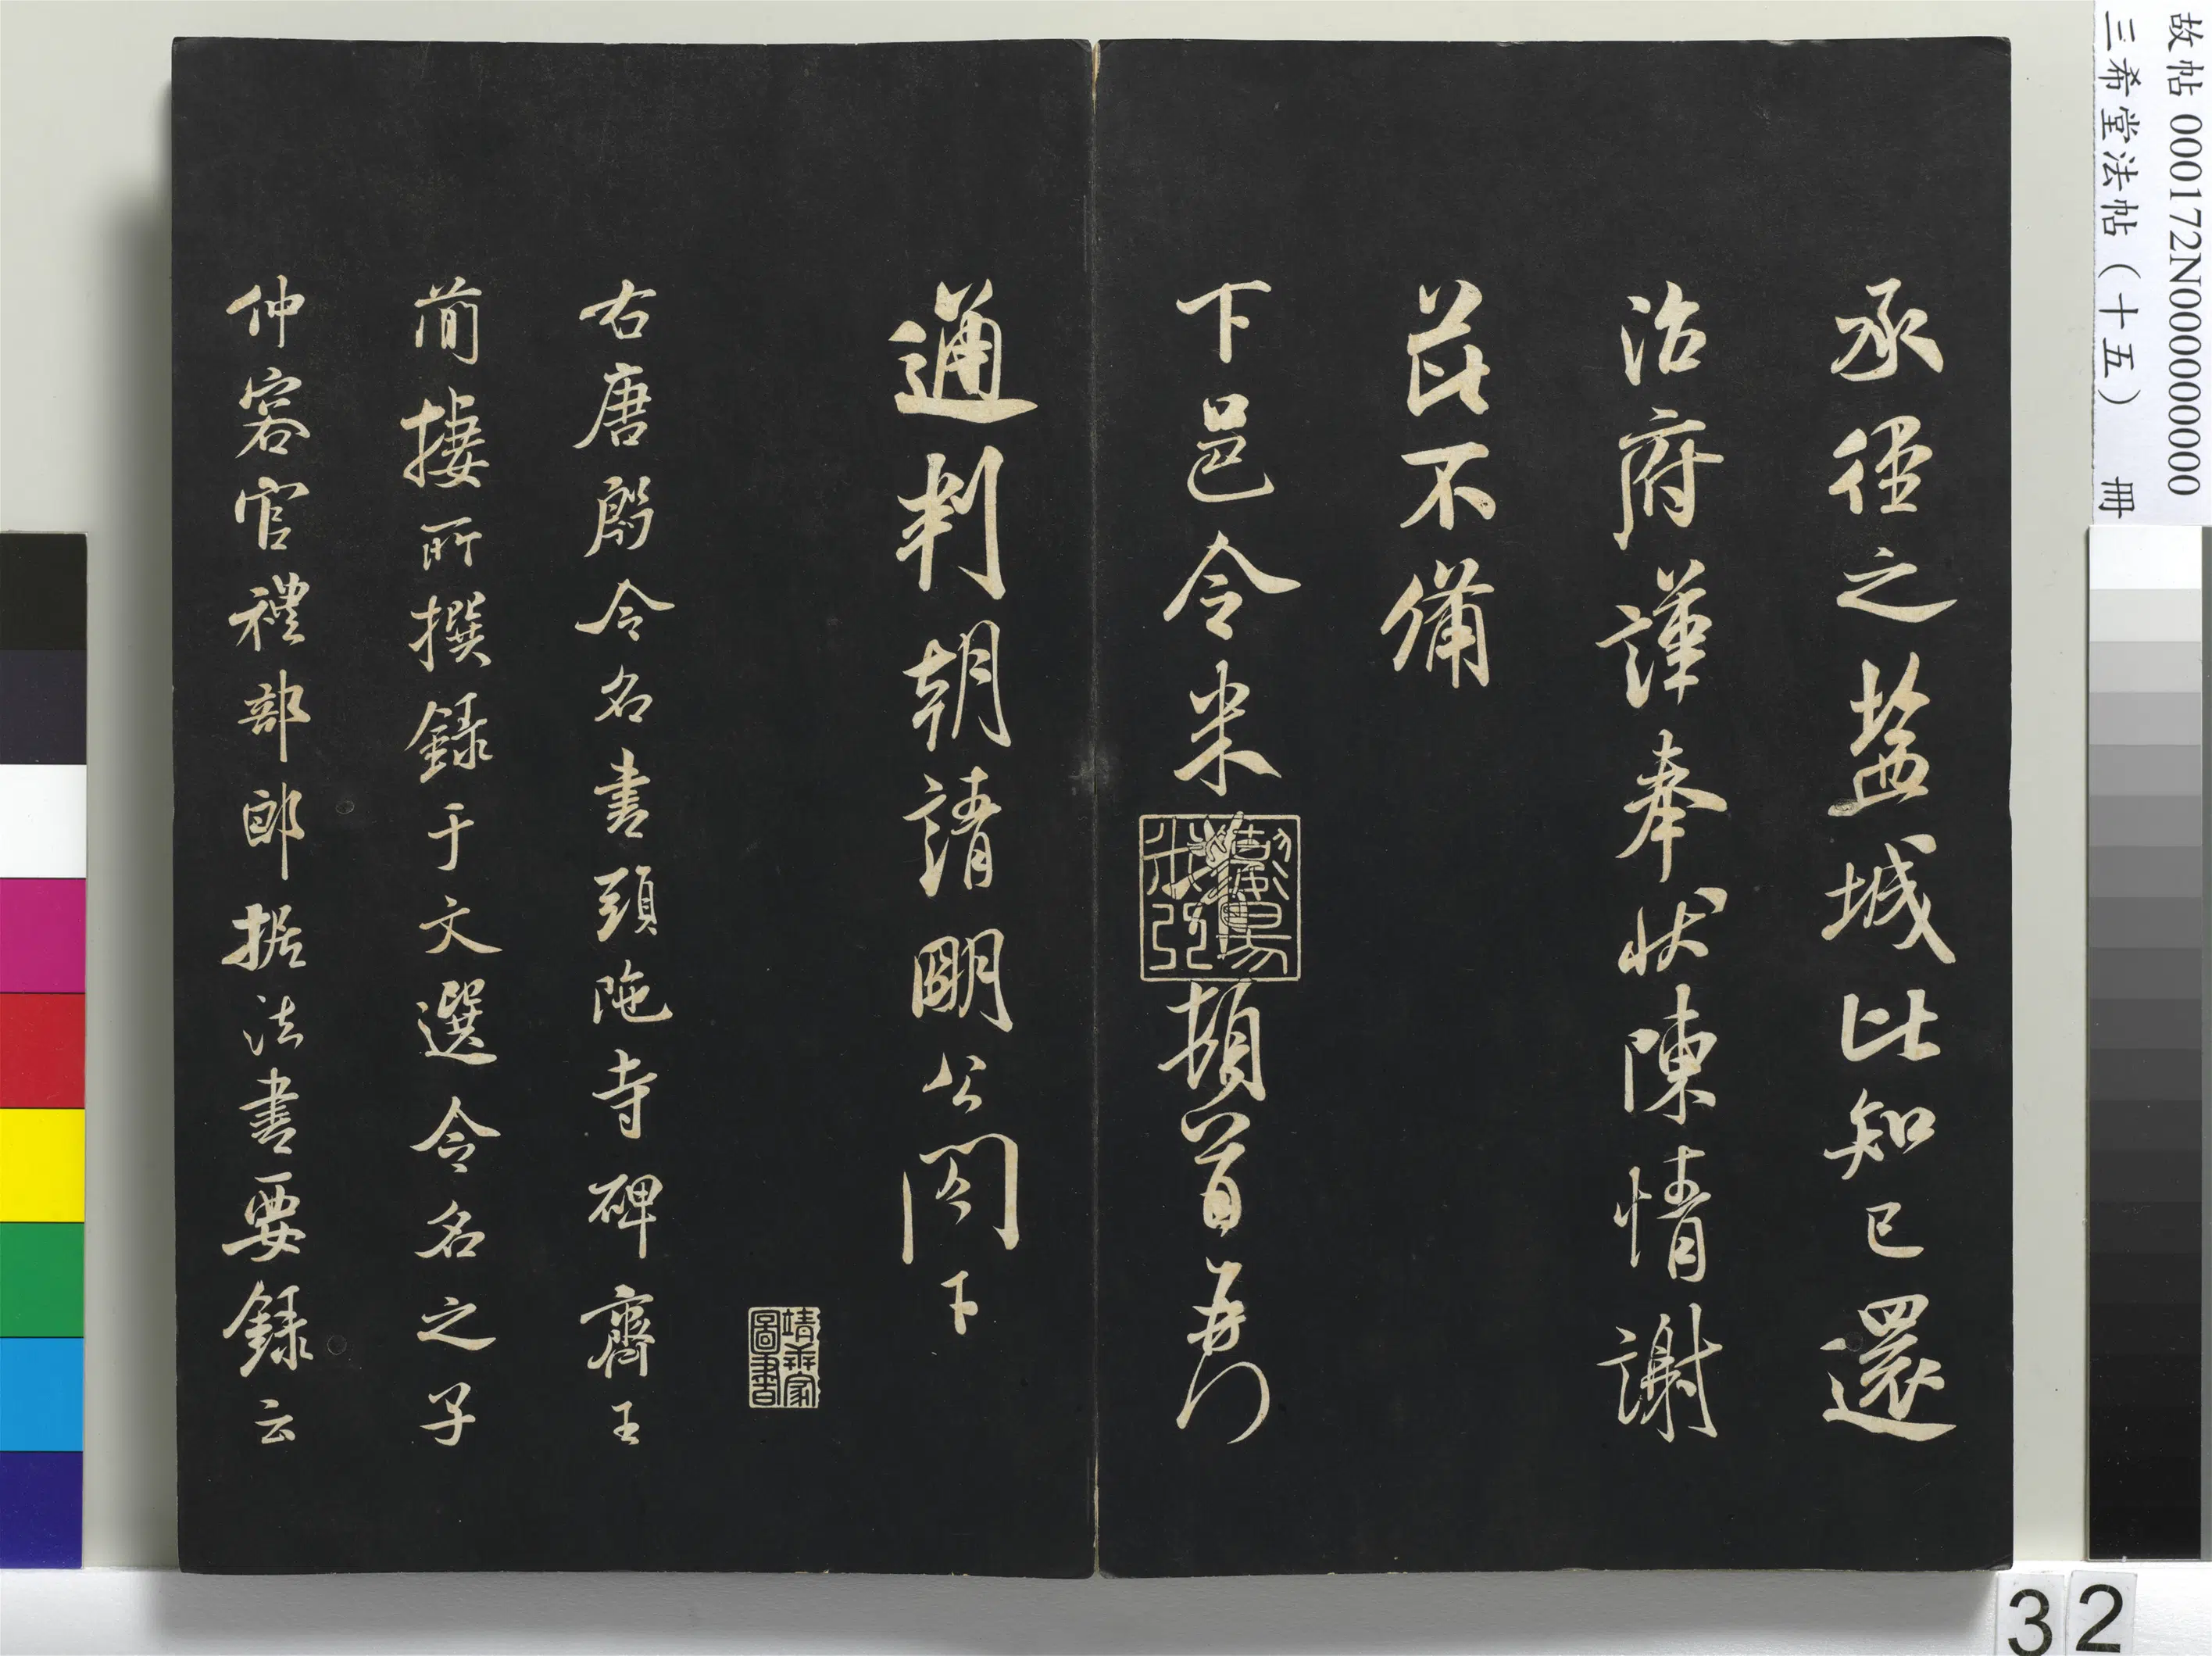 承徑之盐城比知已還
治府謹奉狀陳情謝
茲不備
下邑令米芾頓首再拜
通判朝請明公閣下
右唐殷令名書頭陁寺碑齊王
簡棲所撰録于文選令名之子
仲容官禮部郎据法書要録云
靖庵家
圖書
故帖 000172N000000000
三希堂法帖(十五) 冊
32